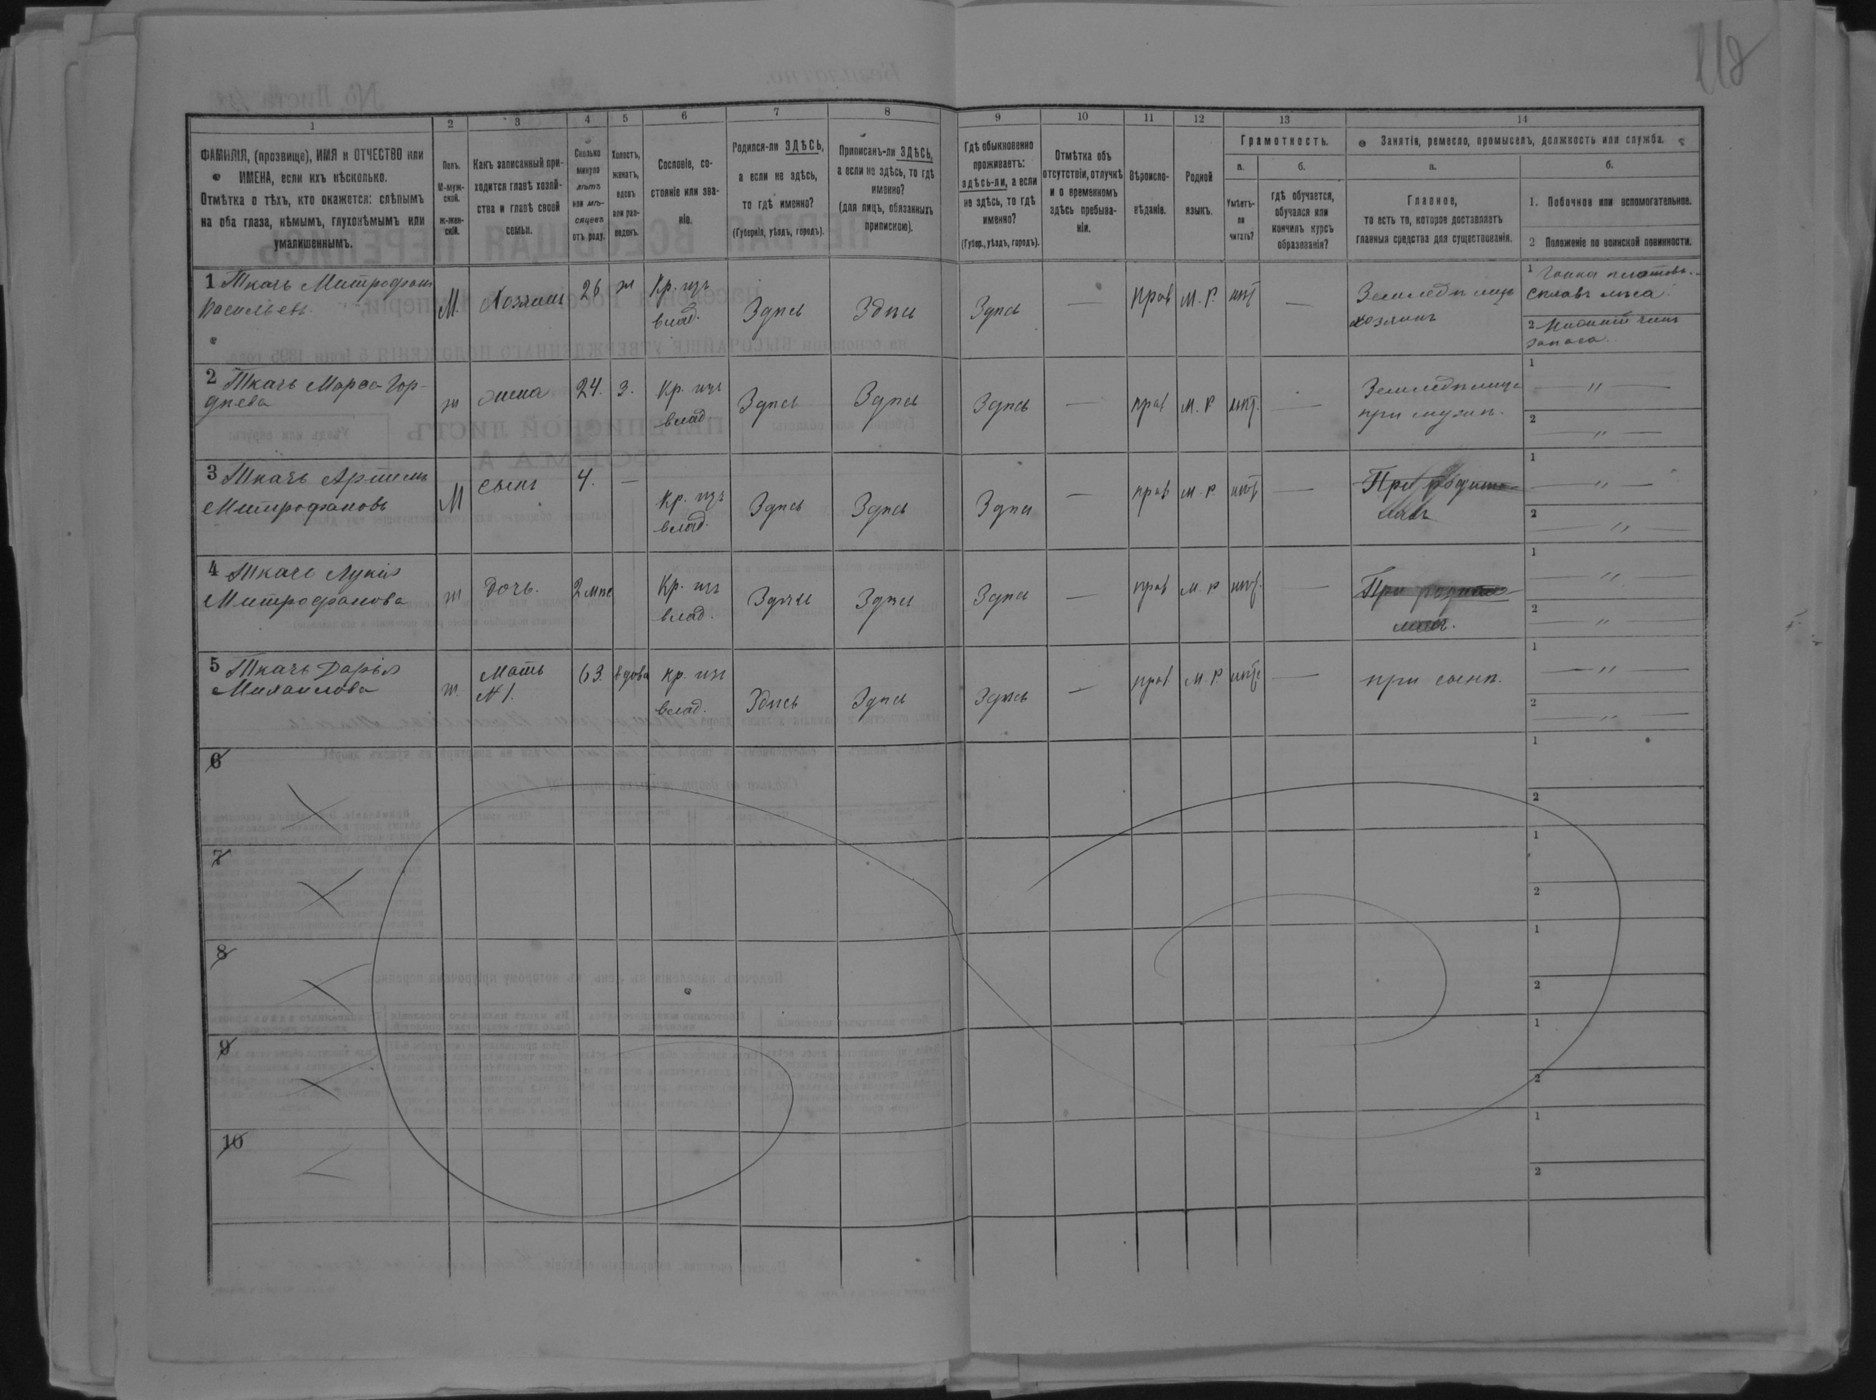 118
1
2
3
4
5
6
7
8
9
10
11
12
13
14
ФАМИЛІЯ, (прозвище), ИМЯ и ОТЧЕСТВО или
ИМЕНА, если ихъ нѣсколько.
Отмѣтка о тѣхъ, кто окажется: слѣпымъ
на оба глаза, нѣмымъ, глухонѣмымъ или
умалишеннымъ.
Полъ.
М-муж-
ской.
Ж-жен-
скій.
Какъ записанный при-
ходится главѣ хозяй-
ства и главѣ своей
семьи.
Сколько
минуло
лѣтъ
или мѣ-
сяцевъ
отъ роду.
Холостъ,
женатъ,
вдовъ
или раз-
веденъ.
Сословіе, со-
стояніе или зва-
ніе.
Родился-ли ЗДѢСЬ,
а если не здѣсь,
то гдѣ именно?
(Губернія, уѣздъ, городъ).
Приписанъ-ли ЗДѢСЬ,
а если не здѣсь, то гдѣ
именно?
(для лицъ, обязанныхъ
припискою).
Гдѣ обыкновенно
проживаетъ:
здѣсь-ли, а если
не здѣсь, то гдѣ
именно?
(Губер., уѣздъ, городъ).
Отмѣтка объ
отсутствіи, отлучкѣ
и о временномъ
здѣсь пребыва-
ніи.
Вѣроиспо-
вѣданіе.
Родной
языкъ.
Грамотность.
а.
б.
Умѣетъ-
ли
читать?
гдѣ обучается,
обучался или
кончилъ курсъ
образованія?
Занятія, ремесло, промыселъ, должность или служба.
а.
б.
Главное,
то есть то, которое доставляетъ
главныя средства для существованія.
1. Побочное или вспомогательное.
2 Положеніе по воинской повинности.
1 Ткачъ Митрофанъ
Васильевъ
М.
Хозяинъ
26
ж
Кр. изъ
влад.
Здѣсь
Здѣсь
Здѣсь
—
прав
М. Р.
нѣт
—
Земледѣлецъ
хозяинъ
1
сплавъ лѣса
2 Нижній чинъ
запаса.
2 Ткачъ Марѳа Гор-
дѣева
ж
жена
24.
З.
Кр. изъ
влад
Здѣсь
Здѣсь
Здѣсь
—
прав
М. Р
нѣт.
—
Земледѣлица
при мужѣ.
1 — " —
2 — " —
3 Ткачъ Артемъ
Митрофановъ
М
сынъ
4.
—
Кр. изъ
влад.
Здѣсь
Здѣсь
Здѣсь
—
прав
М. Р
нѣт
—
При родите
ляхъ
1 — " —
2 — " —
4 Ткачъ Лукія
Митрофанова
ж
дочь.
2 мѣс
Кр. изъ
влад.
Здѣсь
Здѣсь
Здѣсь
—
прав
М. Р
нѣт.
—
При родите
ляхъ.
1 — " —
2 — " —
5 Ткачъ Дарья
Михайлова
ж.
Мать
№ 1.
63.
вдова
Кр. изъ
влад.
Здѣсь
Здѣсь
Здѣсь
—
прав
М. Р.
нѣт
—
при сынѣ.
1 — " —
2 — " —
6
1
2
7
1
2
8
1
2
9
1
2
10
1
2